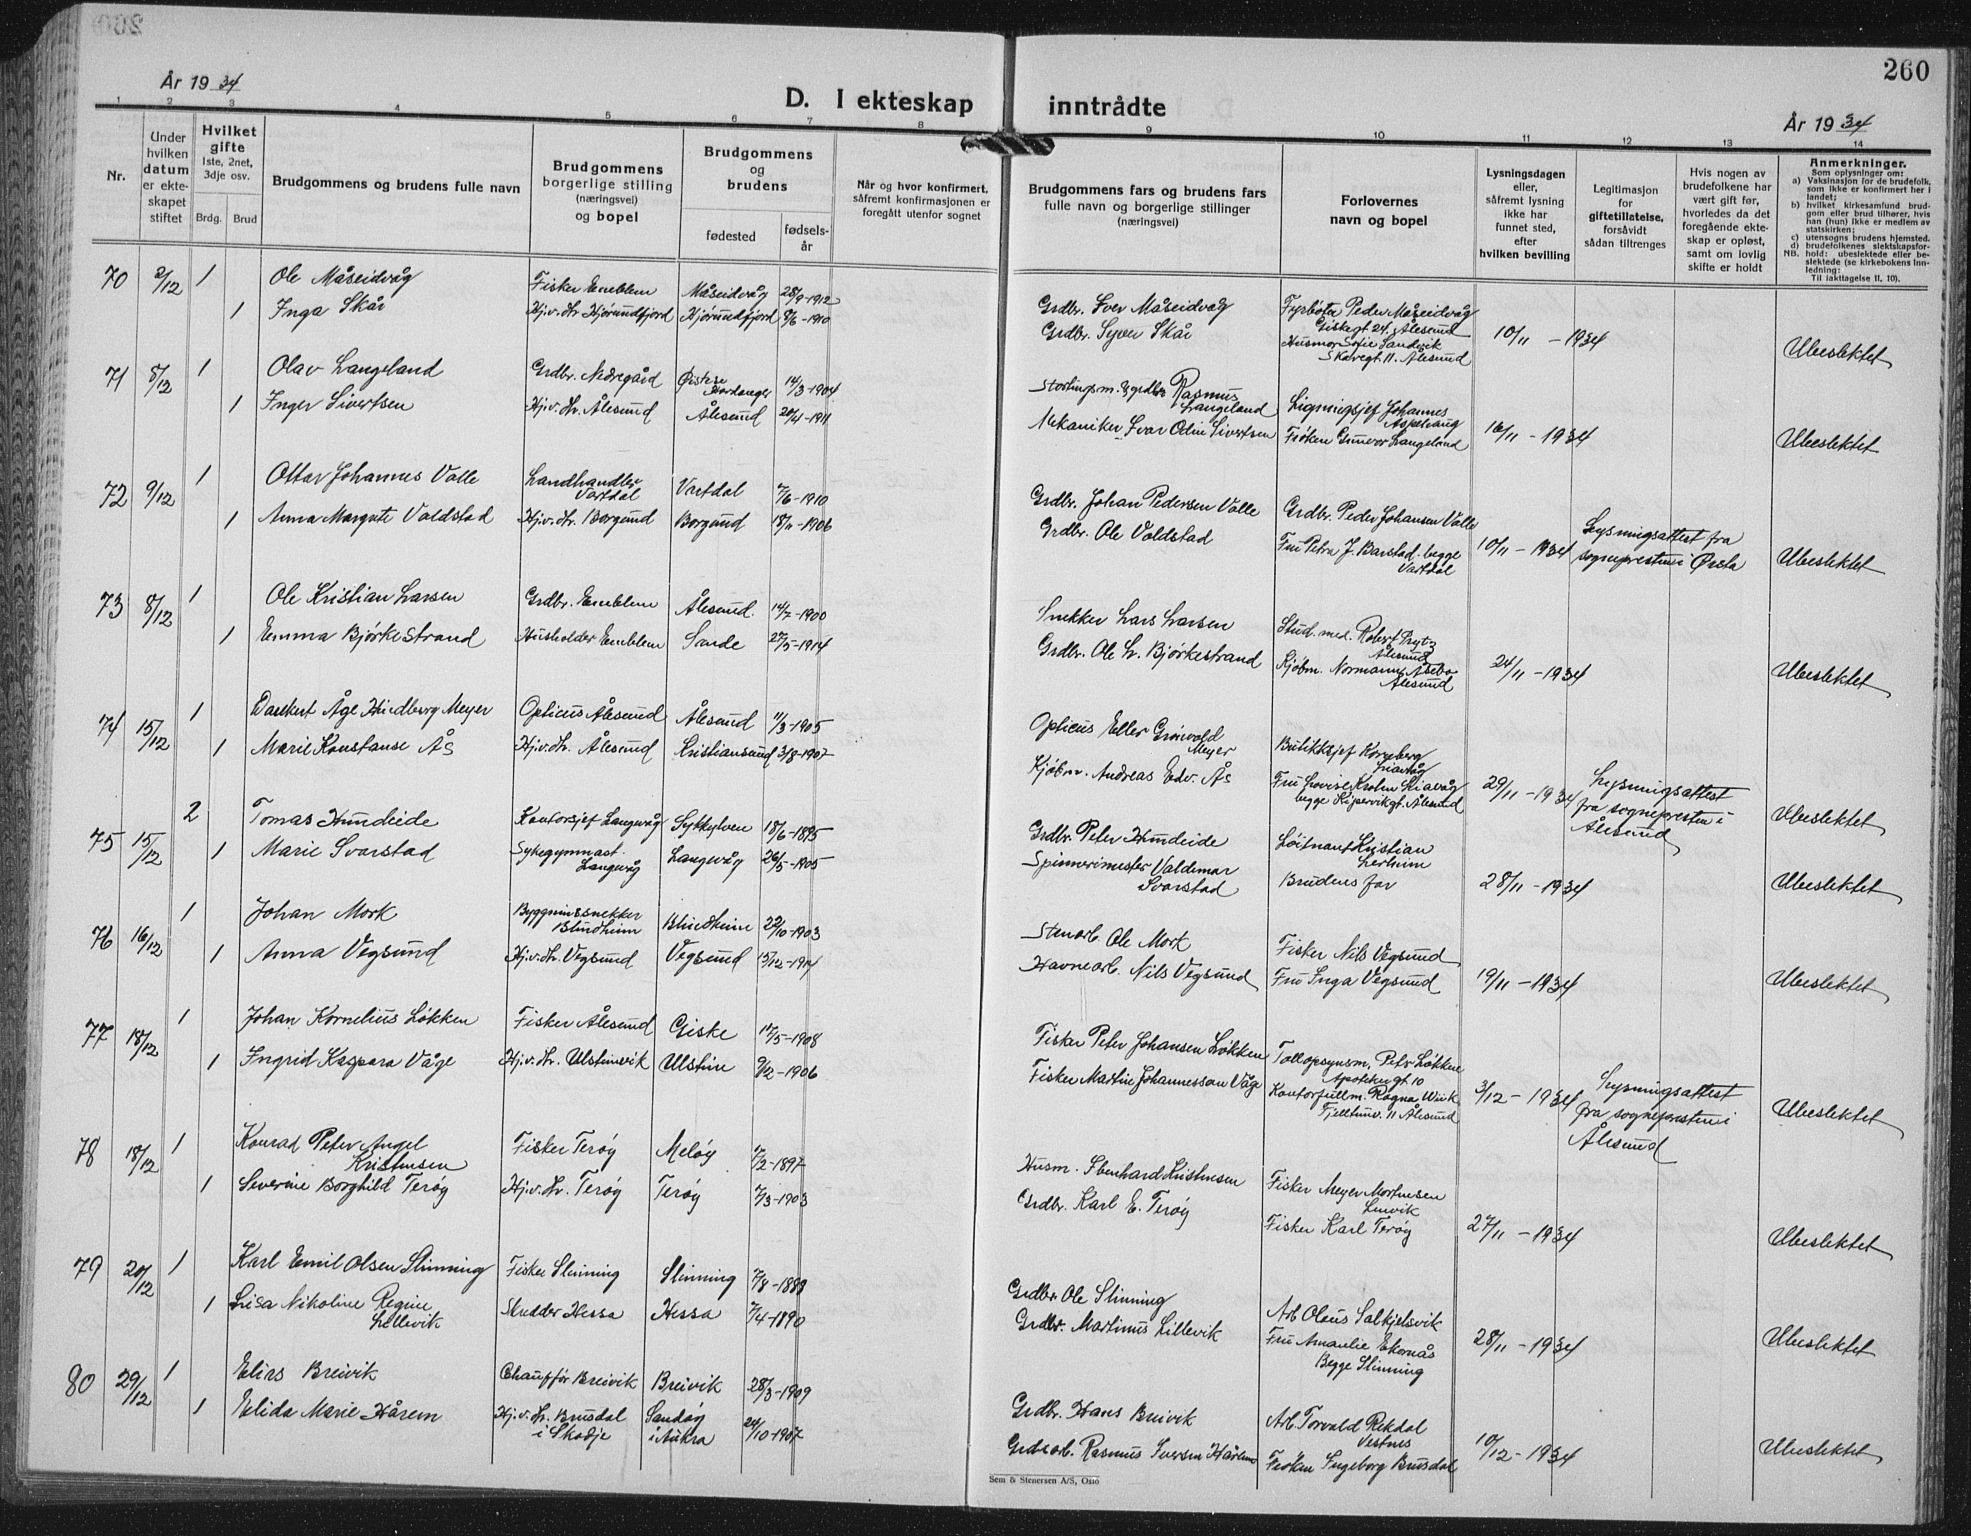 260
År 1934
D. I ekteskap inntrådte
År 1934
1 2 3 4 5 6 7 8 9 10 11 12 13 14
Nr.
Under
hvilken
datum
er ekte-
skapet
stiftet
Hvilket
gifte
1ste, 2net,
3dje osv.
Brdg. Brud
Brudgommens og brudens fulle navn
Brudgommens
borgerlige stilling
(næringsvei)
og bopel
Brudgommens
og
brudens
fødested
fødsels-
år
Når og hvor konfirmert,
såfremt konfirmasjonen er
foregått utenfor sognet
Brudgommens fars og brudens fars
fulle navn og borgerlige stillinger
(næringsvei)
Forlovernes
navn og bopel
Lysningsdagen
eller,
såfremt lysning
ikke har
funnet sted,
efter
hvilken bevilling
Legitimasjon
for
giftetillatelse,
forsåvidt
sådan tiltrenges
Hvis nogen av
brudefolkene har
vært gift før,
hvorledes da det
foregående ekte-
skap er opløst,
samt om lovlig
skifte er holdt
Anmerkninger.
Som oplysninger om:
a) Vaksinasjon for de brudefolk,
som ikke er konfirmert her i
landet;
b) hvilket kirkesamfund brud-
gom eller brud tilhører, hvis
han (hun) ikke er medlem av
statskirken;
c) utensogns brudens hjemsted.
d) brudefolkenes slektskapsfor-
NB. hold: ubeslektede eller be-
slektede (se kirkebokens inn-
ledning:
Til iakttagelse II, 10).
70 2/12 1 Ole Måseidvåg Fisker Emblem Måseidvåg 28/9-1912
1 Inga Skår Hj.v. hr. Hjørundfjord Hjørundfjord 8/6-1910
Grdbr. Iver Måseidvåg
Grdbr. Syver Skår
Fyrbøter Peder Måseidvåg
Giskegt 24. Ålesund
Husmor Sofie Sandvik
Skaregt 11. Ålesund
10/11 - 1934
Ubeslektet
71 8/12 1 Olav Langeland Grdbr. Nedregård Øistese
Hardanger 14/3-1904
1 Inger Sivertsen Hj.v. hr. Ålesund Ålesund 20/4-1911
Stortingsm. & grdbr. Rasmus
Langeland
Mekaniker Ivar Odin Sivertsen
Ligningsjef Johannes
Aspehaug
Frøken Gunvor Langeland
16/11 - 1934
Ubeslektet
72 9/12 1 Ottar Johannes Valle Landhandler
Vartdal Vartdal 7/6-1910
1 Anna Margrete Valdstad Hj.v. hr. Borgund Borgund 18/11-1906
Grdbr. Johan Pedersen Valle
Grdbr. Ole Valdstad
Grdbr. Peder Johansen Valle
Fru Petra J. Barstad. begge
Vartdal
10/11 - 1934
Lysningsattest fra
sognepresten i Ørsta
Ubeslektet
73 8/12 1 Ole Kristian Larsen Grdbr. Emblem Ålesund. 14/7-1900
1 Emma Bjørkestrand Husholder Emblem Sande 27/5-1914
Snekker Lars Larsen
Grdbr. Ole L. Bjørkestrand
Stud. med. Robert Prytz
Ålesund
Kjøbm. Normann Åsebø
Ålesund
24/11 - 1934
Ubeslektet
74 15/12 1 Dankert Åge Hindberg Meyer Opticus Ålesund Ålesund 11/3-1905
1 Marie Konstanse Ås Hj.v. hr. Ålesund Kristiansund 13/8-1907
Opticus Eller Grønvold
Meyer
Kjøbm. Andreas Edv. Ås
Butikksjef Korneberg
Liavåg
Fru Lovise Kroken Liavåg
begge Kipervikgt. Ålesund
29/11 - 1934
Lysningsattest
fra sognepresten i
Ålesund
Ubeslektet
75 15/12 2 Tomas Hundeide Kontorsjef Langevåg Sykkylven 18/6-1895
1 Marie Svarstad Sykegymnast.
Langevåg Langevåg 26/5-1905
Grdbr. Peter Hundeide
Spinnerimester Valdemar
Svarstad
Løitnant Kristian
Lerheim
Brudens far
28/11 - 1934
Ubeslektet
76 16/12 1 Johan Mork Bygningssnekker
Blindheim Blindheim 22/10-1903
1 Anna Vegsund Hj.v. hr. Vegsund Vegsund 15/12-1914
Stenarb. Ole Mork
Havnearb. Nils Vegsund
Fisker Nils Vegsund
Fru Inga Vegsund
19/11 - 1934
Ubeslektet
77 18/12 1 Johan Kornelius Løkken Fisker Ålesund Giske 17/5-1908
1 Ingrid Kaspara Våge Hj.v. hr. Ulsteinvik Ulstein 9/2-1906
Fisker Peter Johansen Løkken
Fisker Martin Johannesson Våge
Tollopsynsm. Petr Løkken
Apotekergt 10
Kontorfullm. Ragna Wiik
Fjelltunv. 11 Ålesund
3/12 - 1934
Lysningsattest
fra sognepresten i
Ålesund
Ubeslektet
78 18/12 1 Konrad Peter Angel
Kristensen Fisker Terøy Meløy 7/2-1897
1 Severine Borghild Terøy Hj.v. hr. Terøy Terøy 7/3-1903
Husm. Ebenhard Kristensen
Grdbr. Karl E. Terøy
Fisker Meyer Mortensen
Lervik
Fisker Karl Terøy
27/11 - 1934
Ubeslektet
79 20/12 1 Karl Emil Olsen Slinning Fisker Slinning Slinning 7/8-1888
1 Lisa Nikoline Regine
Lillevik Skredder Hessa Hessa 7/4-1890
Grdbr. Ole Slinning
Grdbr. Martinus Lillevik
Arb. Olaus Salkjelsvik
Fru Amanlie Ekornås
Begge Slinning
28/11 - 1934
Ubeslektet
80 29/12 1 Elias Breivik Chauffør Breivik Breivik 28/3-1909
1 Elida Marie Hårem Hj.v. hr. Brusdal
i Skodje Sandøy
i Aukra 24/10-1907
Grdbr. Hans Breivik
Grdsarb. Rasmus Iversen Hårem
Arb. Torvald Rekdal
Vestnes
Frøken Ingeborg Brusdal
10/12 - 1934
Ubeslektet
Sem & Stenersen A/S, Oslo